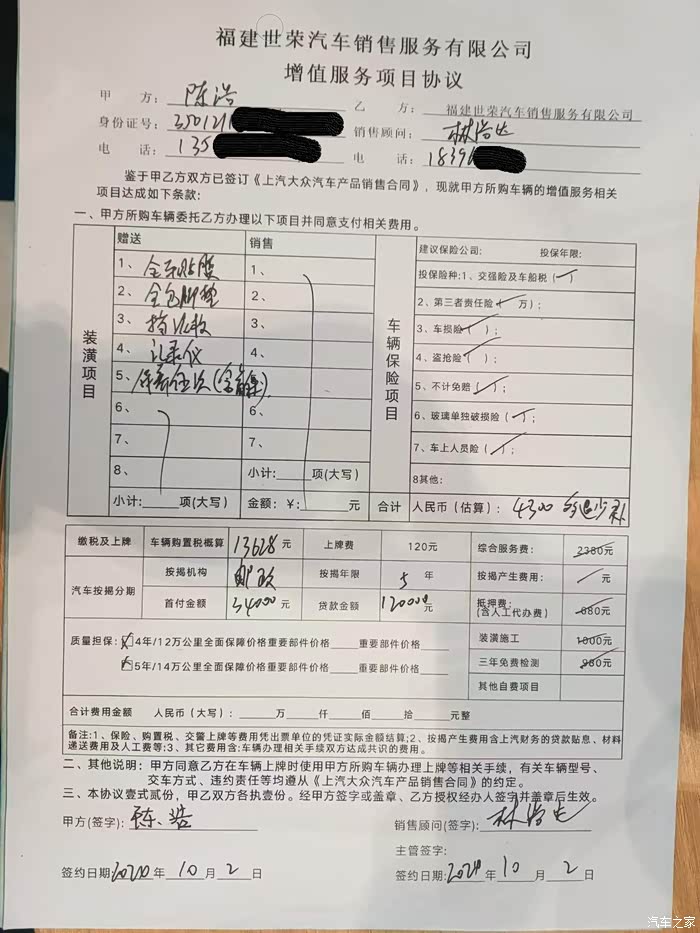 福建世荣汽车销售服务有限公司
增值服务项目协议
甲 方: 陈浩 乙 方: 福建世荣汽车销售服务有限公司
身份证号: 350121 销售顾问:
电 话: 135 电 话: 1839
鉴于甲乙方双方已签订《上汽大众汽车产品销售合同》，现就甲方所购车辆的增值服务相关
项目达成如下条款:
一、甲方所购车辆委托乙方办理以下项目并同意支付相关费用。
装潢项目
赠送 销售
1、全车贴膜 1、
2、全包脚垫 2、
3、挡泥板 3、
4、记录仪 4、
5、 5、
6、 6、
7、 7、
8、 小计: 项(大写)
小计: 项(大写) 金额: ¥: 元
车辆保险项目
建议保险公司: 投保年限:
投保险种:1、交强险及车船税( )
2、第三者责任险( 万);
3、车损险( );
4、盗抢险( );
5、不计免赔( );
6、玻璃单独破损险( );
7、车上人员险( );
8其他:
合计 人民币(估算): 4300 多退少补
缴税及上牌 车辆购置税概算 13628 元 上牌费 120元 综合服务费: 2380元
汽车按揭分期 按揭机构 邮政 按揭年限 5 年 按揭产生费用: 元
首付金额 34000 元 贷款金额 120000 元 抵押费:
(含人工代办费) 680元
质量担保: 4年/12万公里全面保障价格重要部件价格 重要部件价格 装潢施工 1000元
5年/14万公里全面保障价格重要部件价格 重要部件价格 三年免费检测 980元
其他自费项目
合计费用金额 人民币(大写): 万 仟 佰 拾 元整
备注:1、保险、购置税、交警上牌等费用凭出票单位的凭证实际金额结算;2、按揭产生费用含上汽财务的贷款贴息、材料
递送费用及人工费等;3、其它费用含:车辆办理相关手续双方达成共识的费用。
二、其他说明: 甲方同意乙方在车辆上牌时使用甲方所购车辆办理上牌等相关手续，有关车辆型号、
交车方式、违约责任等均遵从《上汽大众汽车产品销售合同》的约定。
三、本协议壹式贰份，甲乙双方各执壹份。经甲方签字或盖章、乙方授权经办人签字并盖章后生效。
甲方(签字): 陈浩 销售顾问(签字):
主管签字:
签约日期: 2020 年 10 月 2 日 签约日期: 2020 年 10 月 2 日
汽车之家